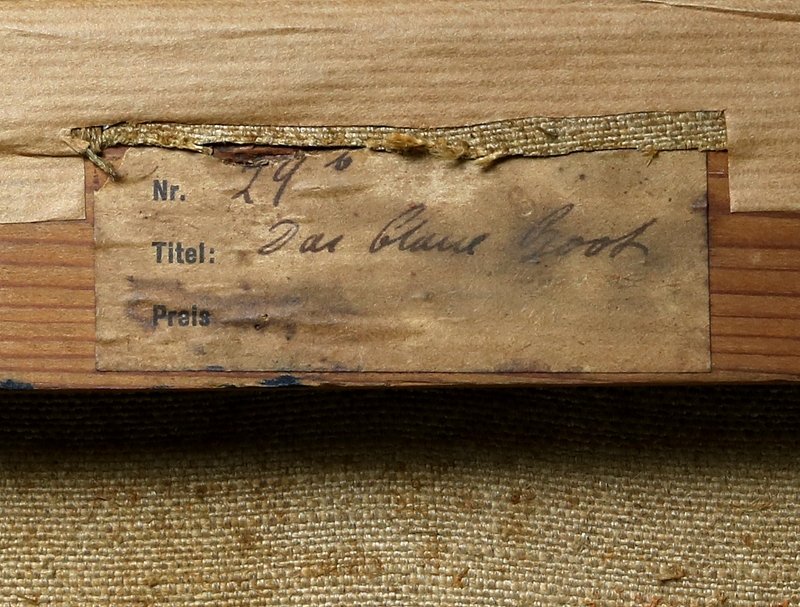 Nr. 29 b
Titel: Das blaue Boot
Preis